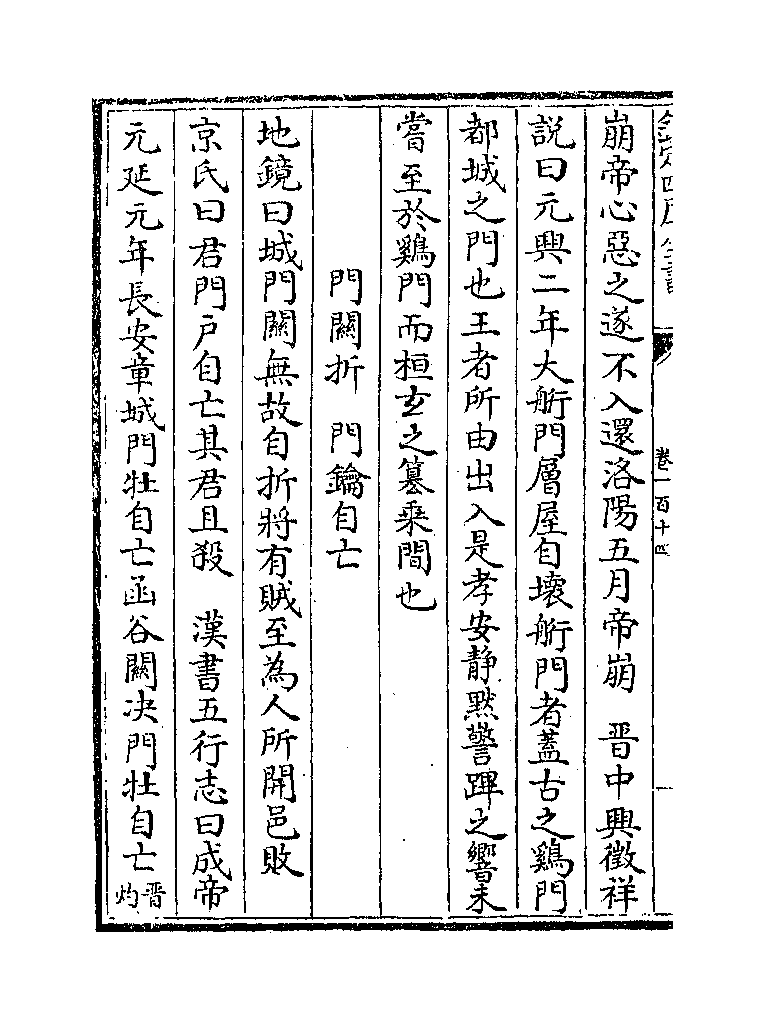 欽定四庫全書
卷一百十四
崩帝心惡之遂不入還洛陽五月帝崩　晉中興徵祥
說曰元興二年大航門層屋自壞航門者蓋古之鷄門
都城之門也王者所由出入是孝安静黙警蹕之響未
嘗至於鷄門而桓玄之簒乘間也
門關折　門鑰自亡
地鏡曰城門關無故自折將有賊至為人所開邑敗
京氏曰君門戶自亡其君且殺　漢書五行志曰成帝
元延元年長安章城門牡自亡函谷關决門牡自亡晉灼